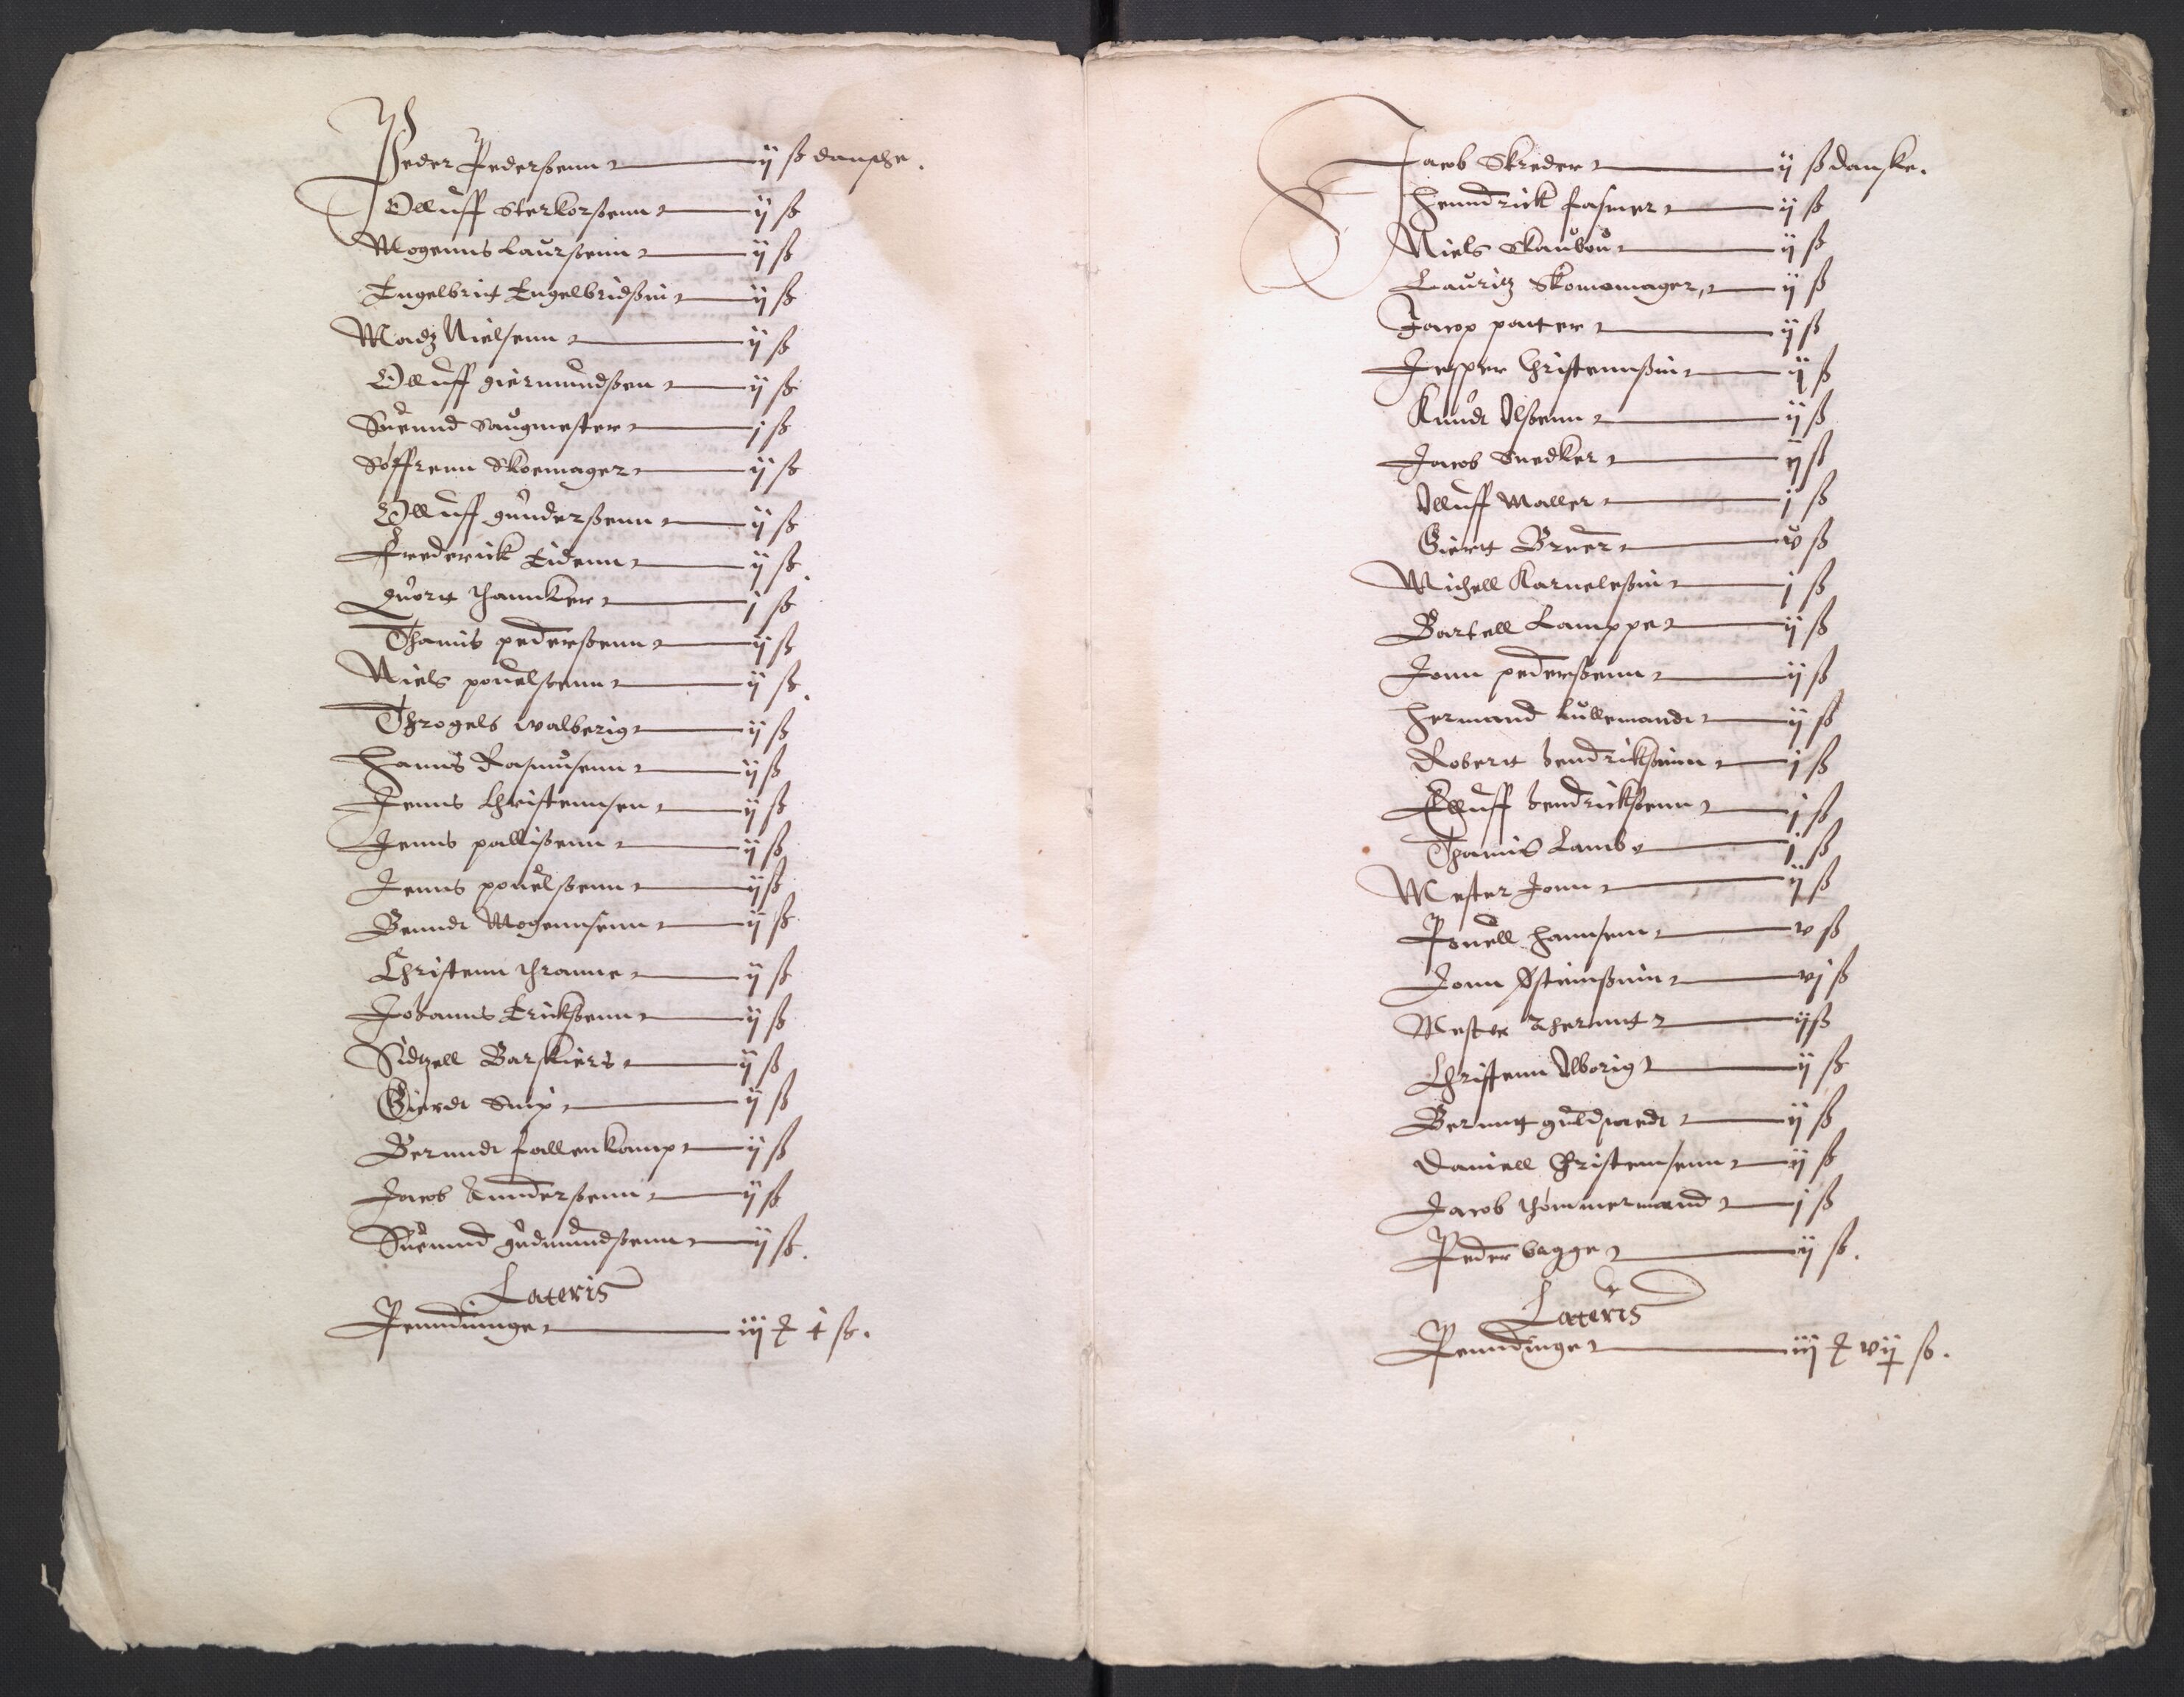 Peder Pedersenn ij ß danske.
Olluff Sterkorsenn ij ß
Mogenns Laursenn ij ß
Engelbrit Engelbridsenn ij ß
Madz Nielsenn ij ß
Olluff giermundsen ij ß
Suennd Saugmester j ß
Søffrenn Skoemager ij ß
Olluff gundersenn ij ß
Frederick Eidenn ij ß.
j ß
Thamis pedersenn ij ß
Niels pouelsenn ij ß.
Throgels walberig ij ß
Hanns Rasmusenn ij ß
Jenns Christennsen ij ß
Jenns pallisenn ij ß
Jenns pouelsenn ij ß
Benndt Mogennsenn ij ß
Christenn thranne ij ß
Johanns Ericksenn ij ß
Sidzell Barskiers ij ß
Gierdt ij ß
Berenndt fallenkamp ij ß
Jacob Anndersenn ij ß
Suennd gudmundsenn ij ß.
Lateris
Penndinge iij ß.
Jacob Skreder ij ß danske.
Henndrick fasmer ij ß
Niels Skaubou ij ß
Lauritz Skomomager ij ß
Jacop potter ij ß
Jesper Christennsenn ij ß
Knudt Olsenn ij ß
Jacob Snedker ij ß
Olluff Maller j ß
Giertt v ß
Michell Karnelesenn j ß
Bartell Lamppe ij ß
Jonn pedersenn ij ß
Hermand kullemandt ij ß
Robertt hendricksenn j ß
Elluff hendricksenn j ß
Thamis Lamb j ß
Mester Jonn ij ß
Pouell Hannsenn v ß
Jonn Østennsenn vj ß
Mester ij ß
Christenn Alborig ij ß
Berentt guldsmedt ij ß
Daniell Christennsenn ij ß
Jacob thømmermand j ß
Peder bagge ij ß.
Lateris
Penndinge iij vij ß.